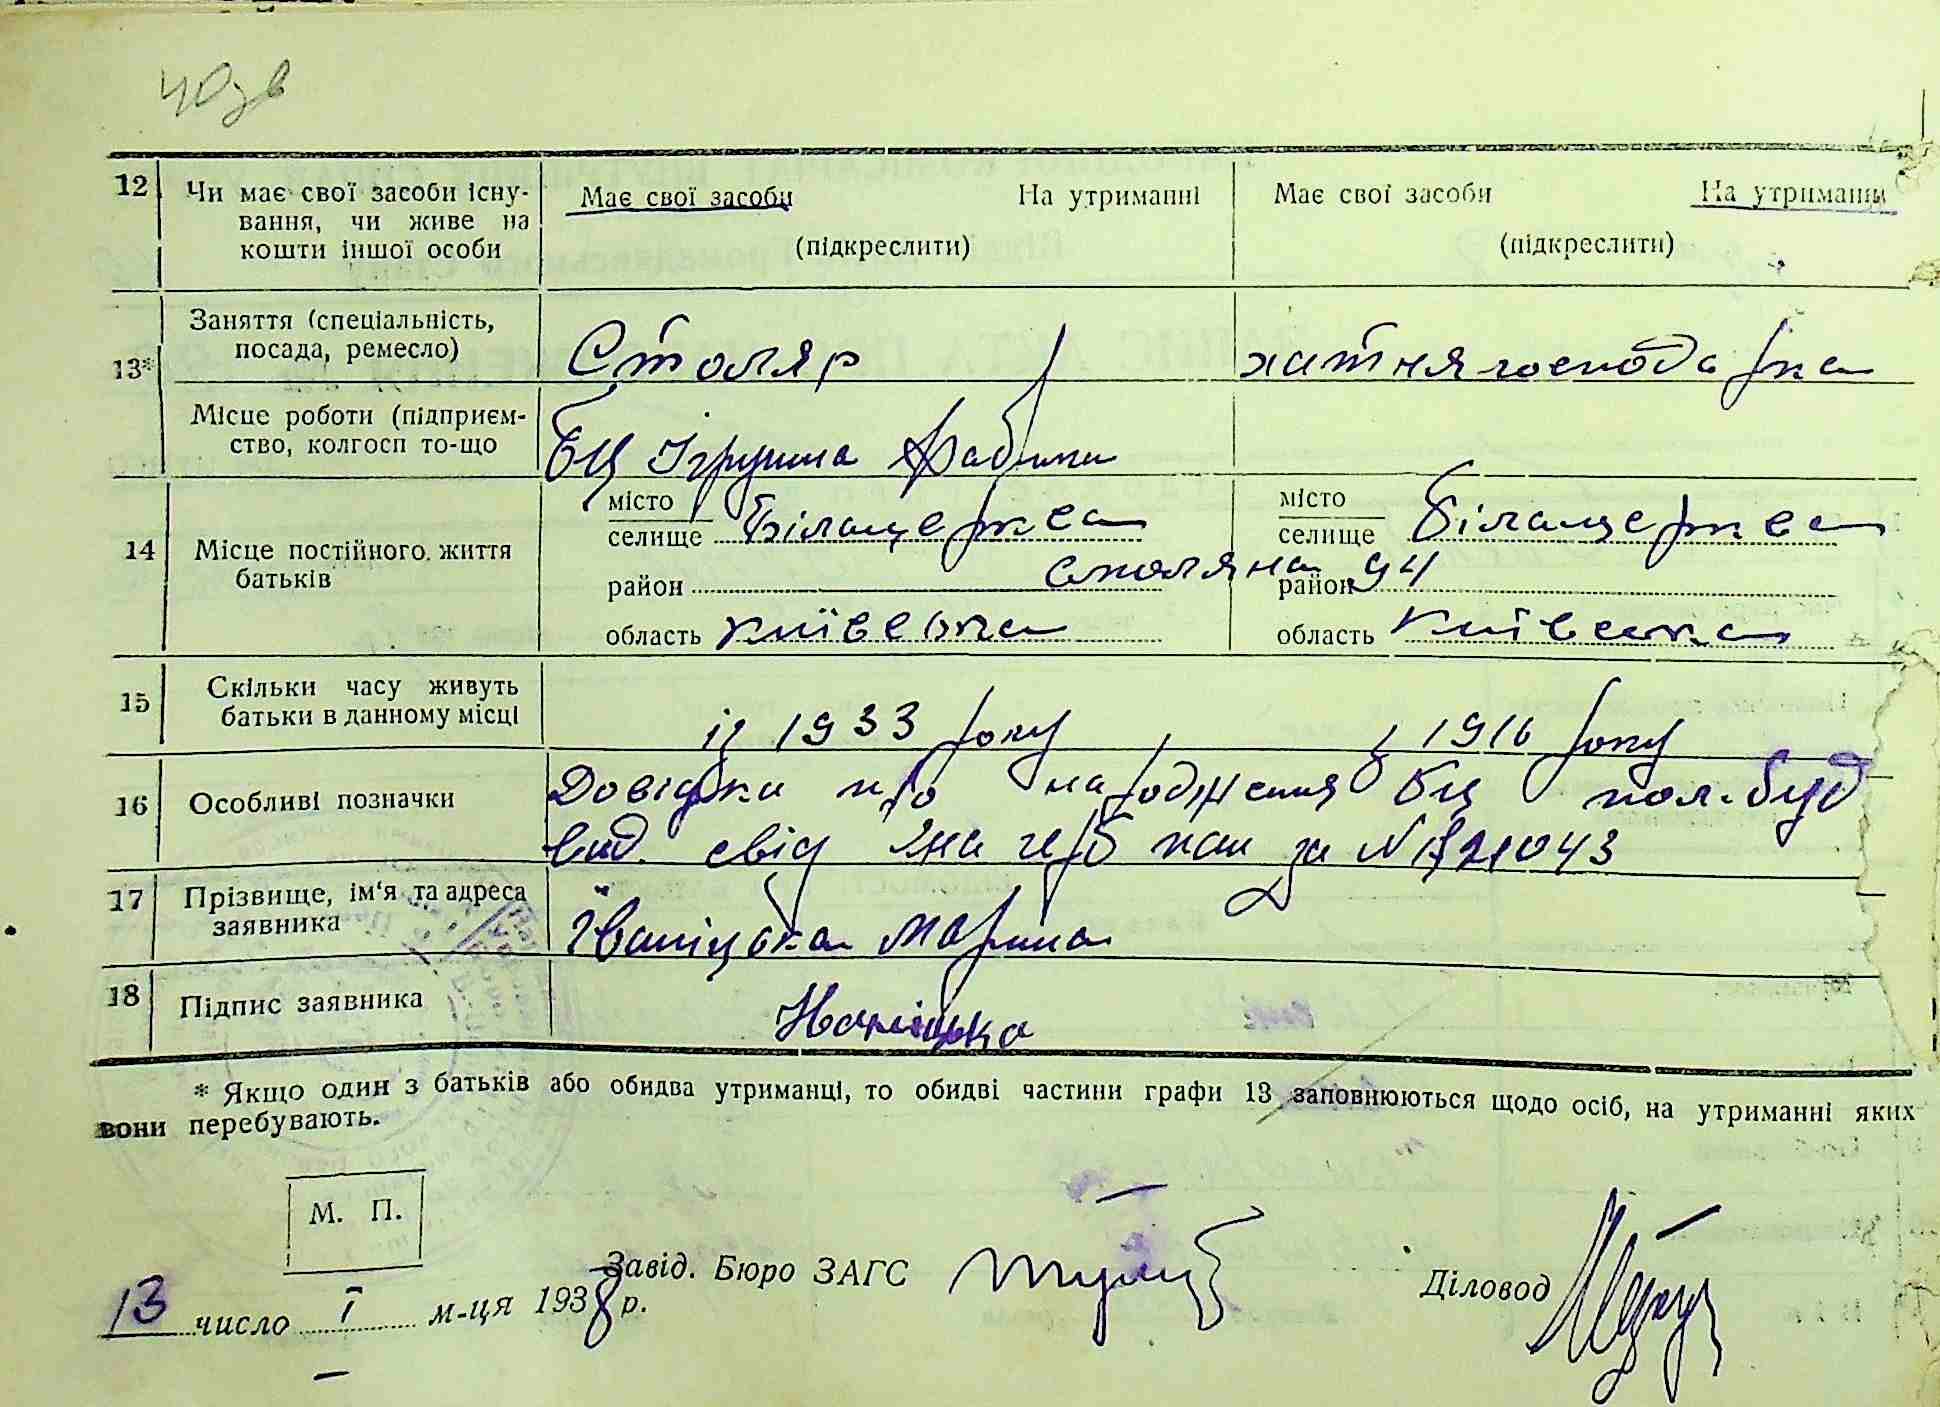 40зв
12 Чи має свої засоби існу- Має свої засоби На утриманні Має свої засоби На утриманні
вання, чи живе на
кошти іншої особи (підкреслити) (підкреслити)
Заняття (спеціальність,
13* посада, ремесло) Столяр хатня господарка
Місце роботи (підприєм-
ство, колгосп то-що БЦ Ігрушна Фабрики
місто місто
селище Білацерква селище Білацерква
14 Місце постійного життя
батьків район смоляна район 94
область київська область Київська
15 Скільки часу живуть
батьки в данному місці із 1933 року , 1916 року
16 Особливі позначки Довідки про народження БЦ пол. буд
вид. свід на герб пап за N 1721043
17 Прізвище, ім'я та адреса
заявника Іваніцька Марина
18 Підпис заявника Иваніцька
* Якщо один з батьків або обидва утриманці, то обидві частини графи 13 заповнюються щодо осіб, на утриманні яких
вони перебувають.
М. П.
Завід. Бюро ЗАГС Діловод
13 число I м-ця 1938 р.